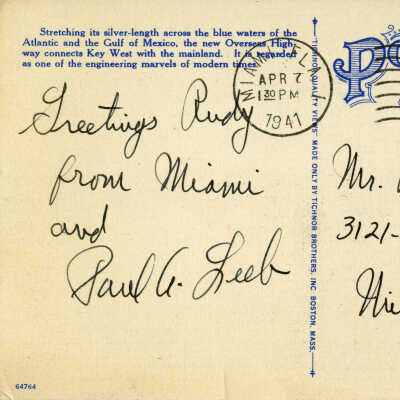 Stretching its silver-length across the blue waters of the
Atlantic and the Gulf of Mexico, the new Overseas High-
way connects Key West with the mainland. It is regarded
as one of the engineering marvels of modern times.
MIAMI, FLA.
APR 7
1 30 PM
1941
Greetings Rudy
from Miami
and
Paul A. Leeb
"TICHNOR QUALITY VIEWS" MADE ONLY BY TICHNOR BROTHERS, INC. BOSTON, MASS.
PO
Mr.
3121-
64764